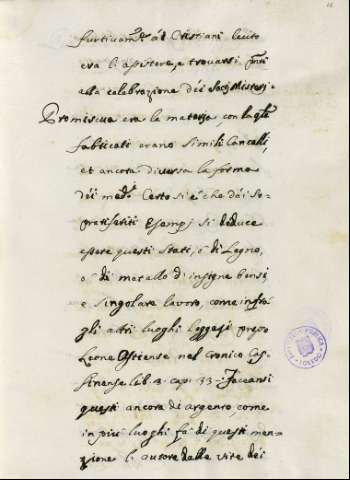 furtivamte a i Cristiani lecito
era l'assistere, e trovarsi pnti
alla celebrazione dei Sacri Misterj
Promiscua era la materja, con la qle
fabricati erano simili Cancelli,
et ancora diversa la forma
dei medi Certo si è che dai so-
pracitati Esempj si deduce
essere questi stati, o di Legno,
o di metallo d'insigne bensì
e singolare lavoro, come infra
gli altri luoghi leggesi presso
Leone Ostiense nel Cronico Cas-
sinense lib. 3. cap. 33. Faceansi
questi ancora di argento come
in più luoghi fa di questi men-
zione l'autore delle vite dei